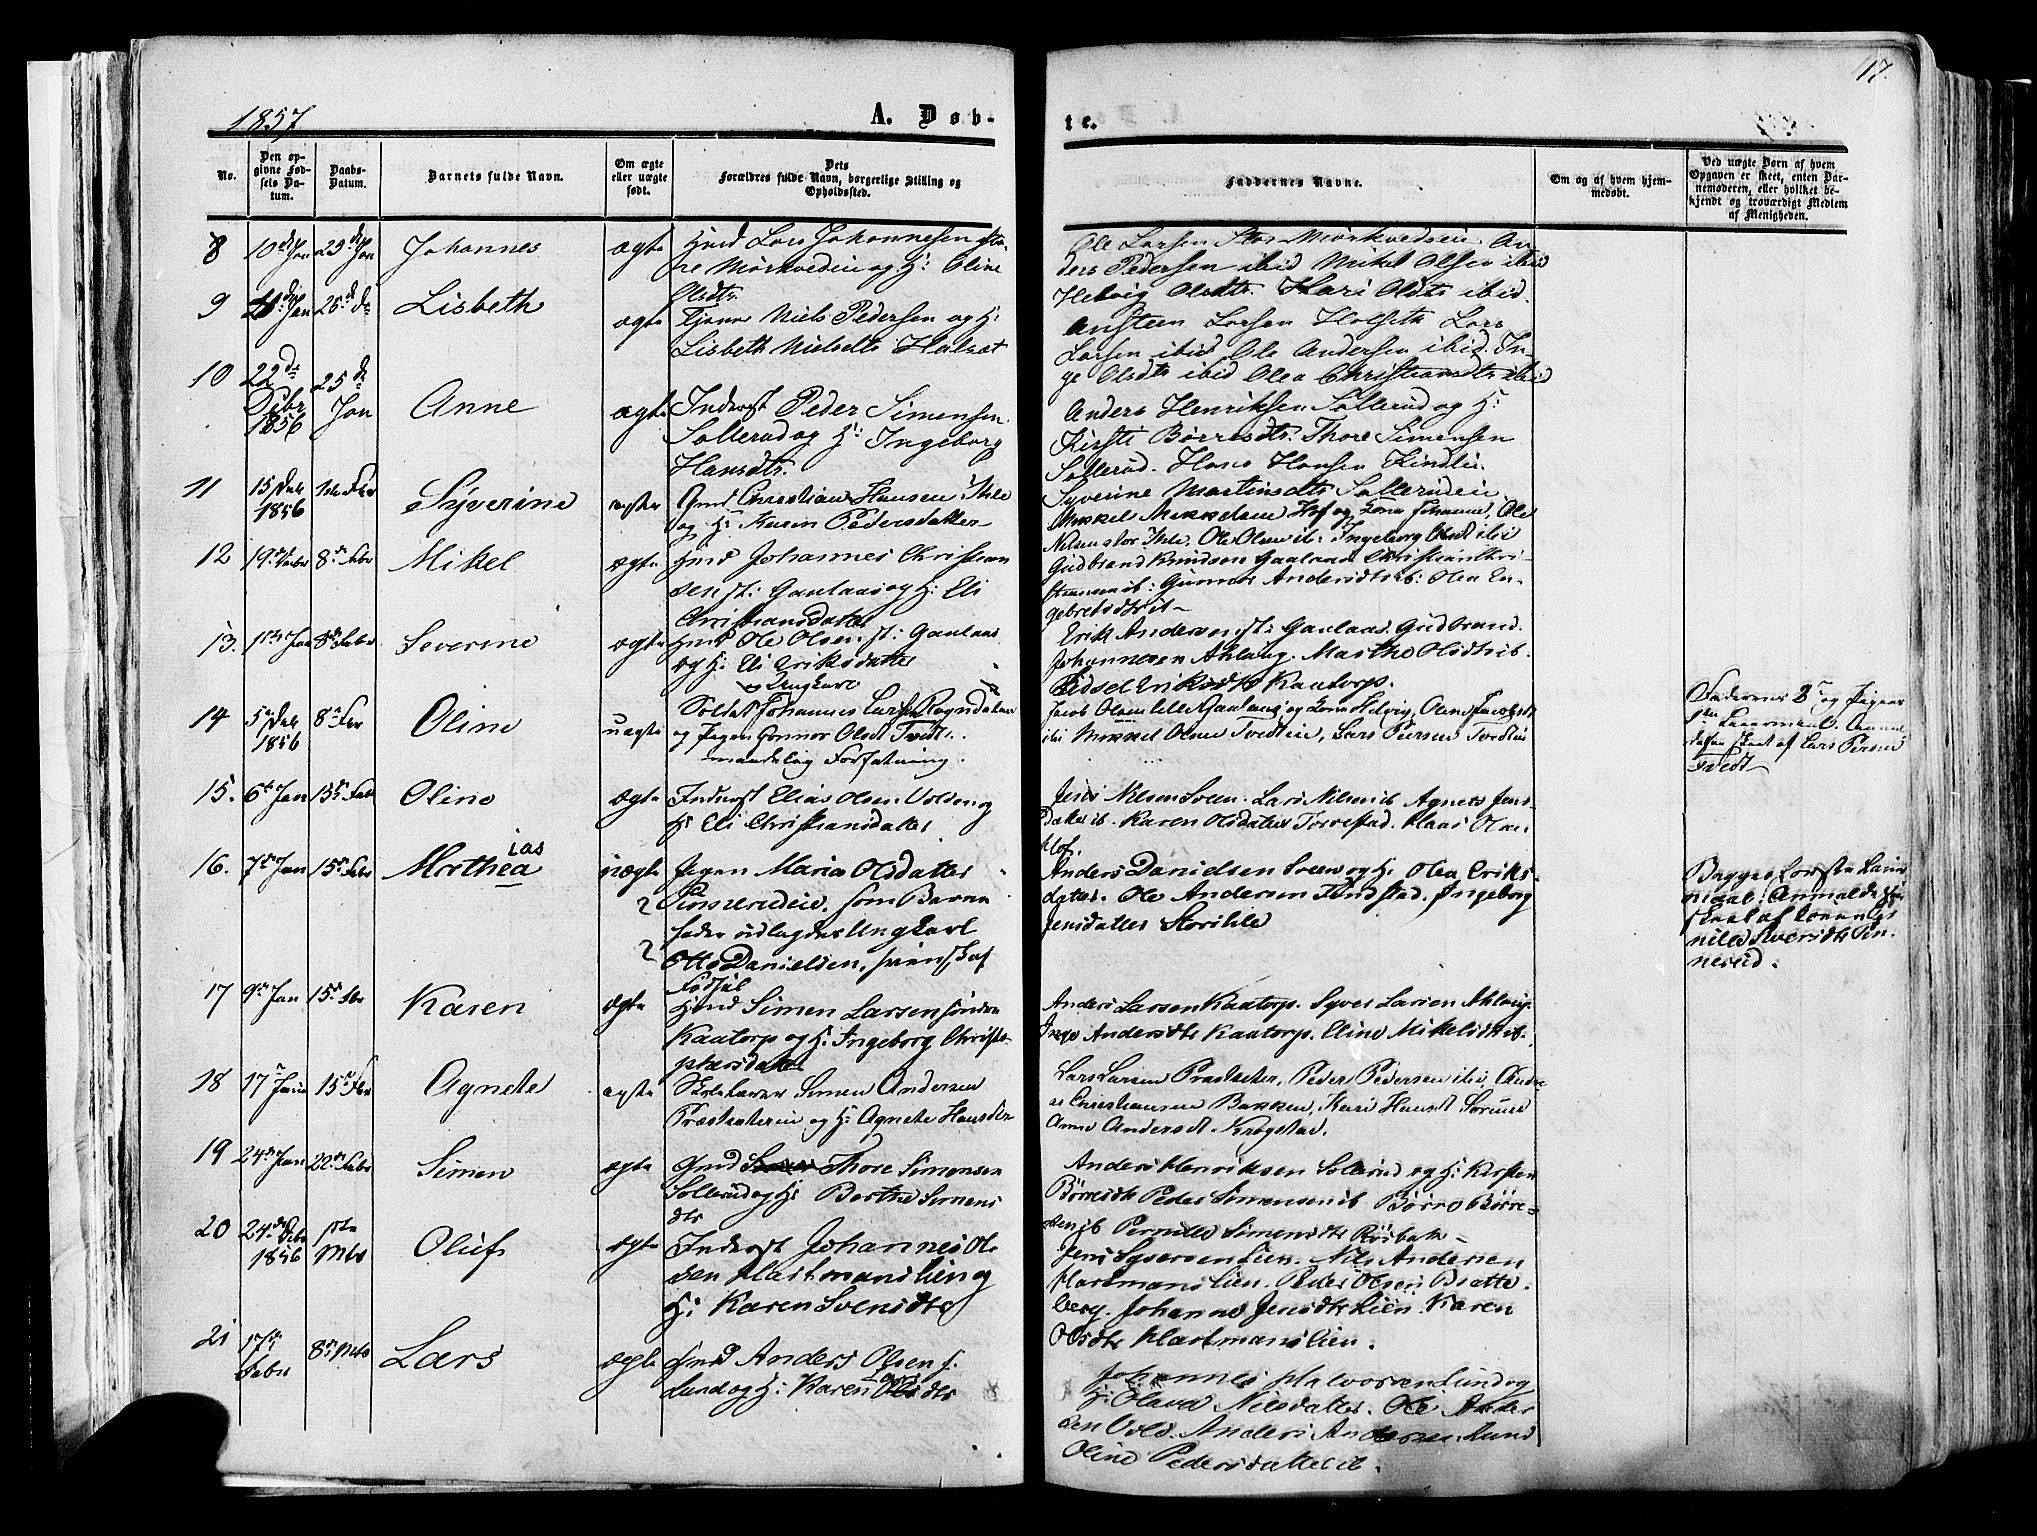 17
1857
A. Døb-
te.
No.
Den op-
givne Fød-
sels Da-
tum.
Daabs-
Datum.
Barnets fulde Navn.
Om ægte
eller uægte
født.
Dets
Forældres fulde Navn, borgerlige Stilling og
Opholdssted.
Faddernes Navne.
Om og af hvem hjem-
medøbt.
Ved uægte Børn af hvem
Opgaven er skeet, enten Bar-
nemoderen, eller hvilket be-
kjendt og troværdigt Medlem
af Menigheden.
8 10de Jan 25de Jan Johannes ægte Gmd Lars Johannesen Sto-
re Mørkvedeie og H: Oline
Olsdtr.
Ole Larsen Stor Mørkvedeie An-
ders Pedersen ibid Mikel Olsen ibid
Helvig Olsdtr. Kari Olsdtr ibid.
9 Jan 25de Lisbeth ægte Tjener Niels Pedersen og H:
Lisbeth Nielsdtr Holset
Ansteen Larsen Holseth Lars
Larsen ibid Ole Andersen ibid. In-
ge Olsdtr ibid Olea Christiansdtr ibid
10 22de Debr 1856 25de Jan Anne ægte Inderst Peder Simensen
Sollerud og H: Ingeborg
Hansdtr.
Anders Henriksen Sollerud og H:
Kirsti Børresdtr. Thore Simensen
Sollerud. Hans Hansen Kindlie.
Syverine Martinsdtr Solleruleie.
11 15 Deb 1856 1ste Feb Syverine ægte Gmd Christian Hansen Ihle
og H: Karen Pedersdatter
Mikkel Mikkelsen Hof og Kone Johanne, Ole
Nilsen stor Ihle, Ole Olsen ib: Ingeborg Olsdt ibid
12 19de Debr 8de Febr Mikel ægte Gmd Johannes Christian
sen st: Gaalaas og H: Eli
Christiansdatter
Gudbrand Knudsen Gaalaas Christian Chri-
stiansen ib: Gunnor Andersdtr ib: Olea En-
gebretsdtr ib
13. 1ste Jan 8de Febr Severine ægte Gmd Ole Olsen st: Gaalaas
og H: Eli Eriksdatter
Erik Andersen st: Gaalaas. Gudbrand
Johannesen Ahlung. Marthe Olsdtr ib.
Sidsel Eriksdtr Kaatorp.
14 5te Deb 1856 8de Feb Oline uægte og Ungkarl
Soldat Johannes Larsen Rogndalen
og Pigen Gunnor Olsdt Tvedt.
mandelig Forfatning.
Jacob Olsen lille Gaalaas og Kone Helvig, Oline Jacobsdt
ibid Mikkel Olsen Tvedteie, Lars Persen Tvedteie
Faderens 2de og Pigens
1ste Leiermaal. Anmel-
delsen skeet af Lars Persen
Tvedt
15. 6te Jan 15de Febr Oline ægte Inderst Elias Olsen Volden og
H: Eli Christiansdatter
Jens Nilsen Sveen. Lars Nilsen ib Agnete Jens-
datter ib. Karen Olsdatter Torvestad. Klaas Olsen
Hof.
16. 7de Jan 15de Febr Marthea ias uægte Pigen Maria Olsdatter
som Barne
fader udlagdes Ungkarl
Otto Danielsen, svensk af
Fødsel
Anders Danielsen Sveen og H: Olea Eriks-
datter. Ole Andersen Tandstad. Ingeborg
Jensdatter Storihle
Begges første Leier
maal: Anmeldelse
skeet af
17 9de Jan 15de Feb Karen ægte Gmd Simen Larsen søndre
Kaatorp og H: Ingeborg Christo-
phersdatter
Anders Larsen Kaatorp. Syver Larsen Ahlung.
Inge Andersdtr Kaatorp. Eline Mikelsdtr ib.
18 17de Janu 15de Feb Agnete ægte Skolelærer Simen Andersen
Præstsæterie og H: Agnete Hansdtr
Lars Larsen Præstsæter, Peder Pedersen ibid, Andre
as Christiansen Bakken, Kari Hansdt
Anne Andersdt. Krogstad.
19 24de Jan 22de Febr Simen ægte Gmd Thore Simensen
Sollerud og H: Berthe Simens
dtr
Anders Henriksen Sollerud og H: Kirsten
Børresdtr Peder Simensen ib Børre Børre-
sen ib Pernille Simensdtr
20 24de Debr 1856 1ste Mts Oluf ægte Inderst Johannes Ol
sen Hartmanslien og
H: Karen Svensdtr
Jens Syversen Lien. Nils Andersen
Hartmanslien. Peder Olsen Bratte-
berg. Johanne Jensdtr Lien. Karen
Olsdtr Hartmanslien.
21 17de Febr 8de Mts Lars ægte Gmd Anders Olsen s.
Lund og H: Karen Olsdtr
Johannes Halvorsen Lund og
H: Olava Nilsdatter. Ole Ander
sen Vold. Anders Andersen Lund
Oline Pedersdatter ib.